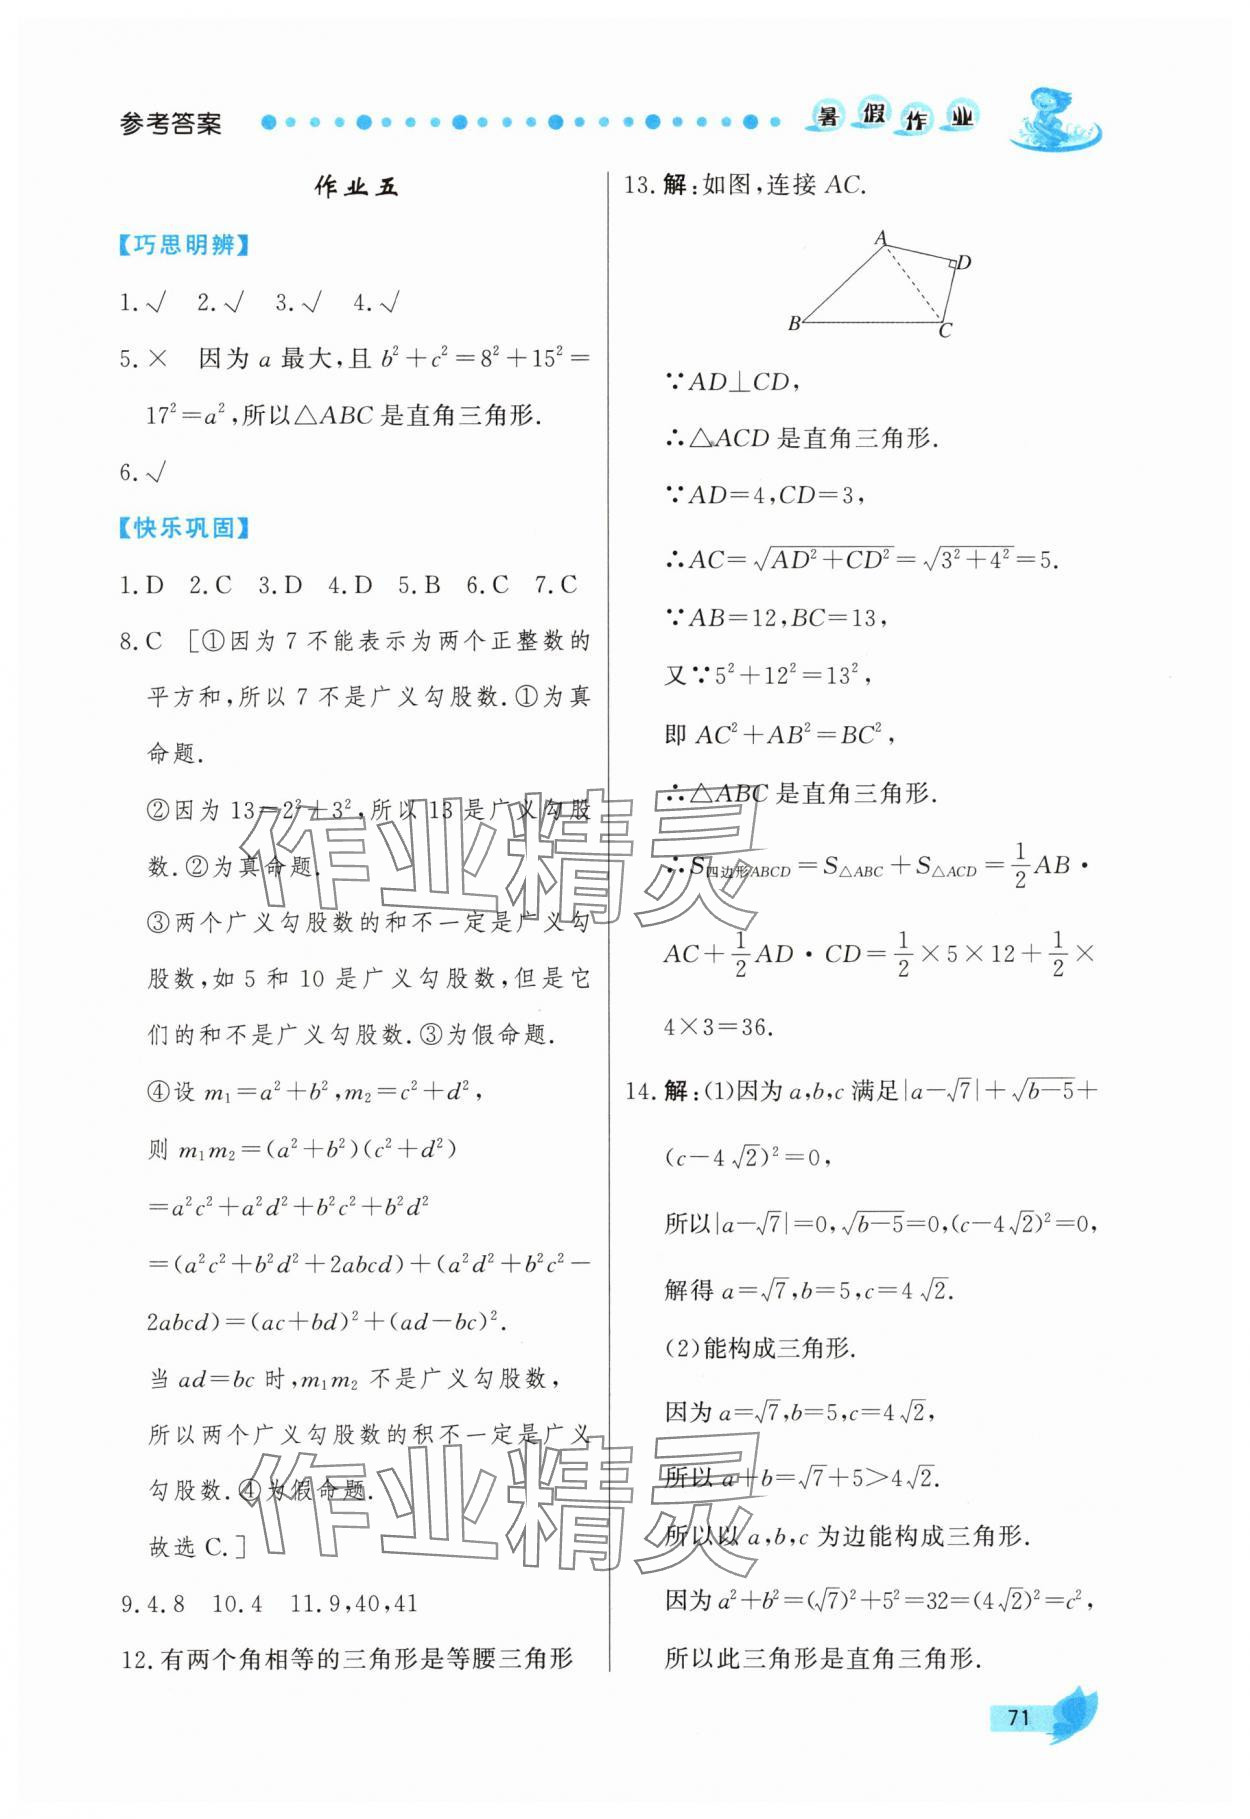 参考答案
暑假作业
作业五
【巧思明辨】
1.√ 2.√ 3.√ 4.√
5.× 因为 a 最大,且 b²+c²=8²+15²=
17²=a²,所以△ABC 是直角三角形.
6.√
【快乐巩固】
1.D 2.C 3.D 4.D 5.B 6.C 7.C
8.C [①因为 7 不能表示为两个正整数的
平方和,所以 7 不是广义勾股数.①为真
命题.
②因为 13=2²+3²,所以 13 是广义勾股
数.②为真命题.
③两个广义勾股数的和不一定是广义勾
股数,如 5 和 10 是广义勾股数,但是它
们的和不是广义勾股数.③为假命题.
④设 m₁=a²+b²,m₂=c²+d²,
则 m₁m₂=(a²+b²)(c²+d²)
=a²c²+a²d²+b²c²+b²d²
=(a²c²+b²d²+2abcd)+(a²d²+b²c²-
2abcd)=(ac+bd)²+(ad-bc)².
当 ad=bc 时,m₁m₂ 不是广义勾股数,
所以两个广义勾股数的积不一定是广义
勾股数.④为假命题.
故选 C.]
9.4.8 10.4 11.9,40,41
12.有两个角相等的三角形是等腰三角形
13.解:如图,连接 AC.
A
D
B
C
∵AD⊥CD,
∴△ACD 是直角三角形.
∵AD=4,CD=3,
∴AC=√(AD²+CD²)=√(3²+4²)=5.
∵AB=12,BC=13,
又∵5²+12²=13²,
即 AC²+AB²=BC²,
∴△ABC 是直角三角形.
∴S四边形ABCD=S△ABC+S△ACD=1/2AB·
AC+1/2AD·CD=1/2×5×12+1/2×
4×3=36.
14.解:(1)因为 a,b,c 满足|a-√7|+√(b-5)+
(c-4√2)²=0,
所以|a-√7|=0,√(b-5)=0,(c-4√2)²=0,
解得 a=√7,b=5,c=4√2.
(2)能构成三角形.
因为 a=√7,b=5,c=4√2,
所以 a+b=√7+5>4√2.
所以以 a,b,c 为边能构成三角形.
因为 a²+b²=(√7)²+5²=32=(4√2)²=c²,
所以此三角形是直角三角形.
71
作业精灵
作业精灵